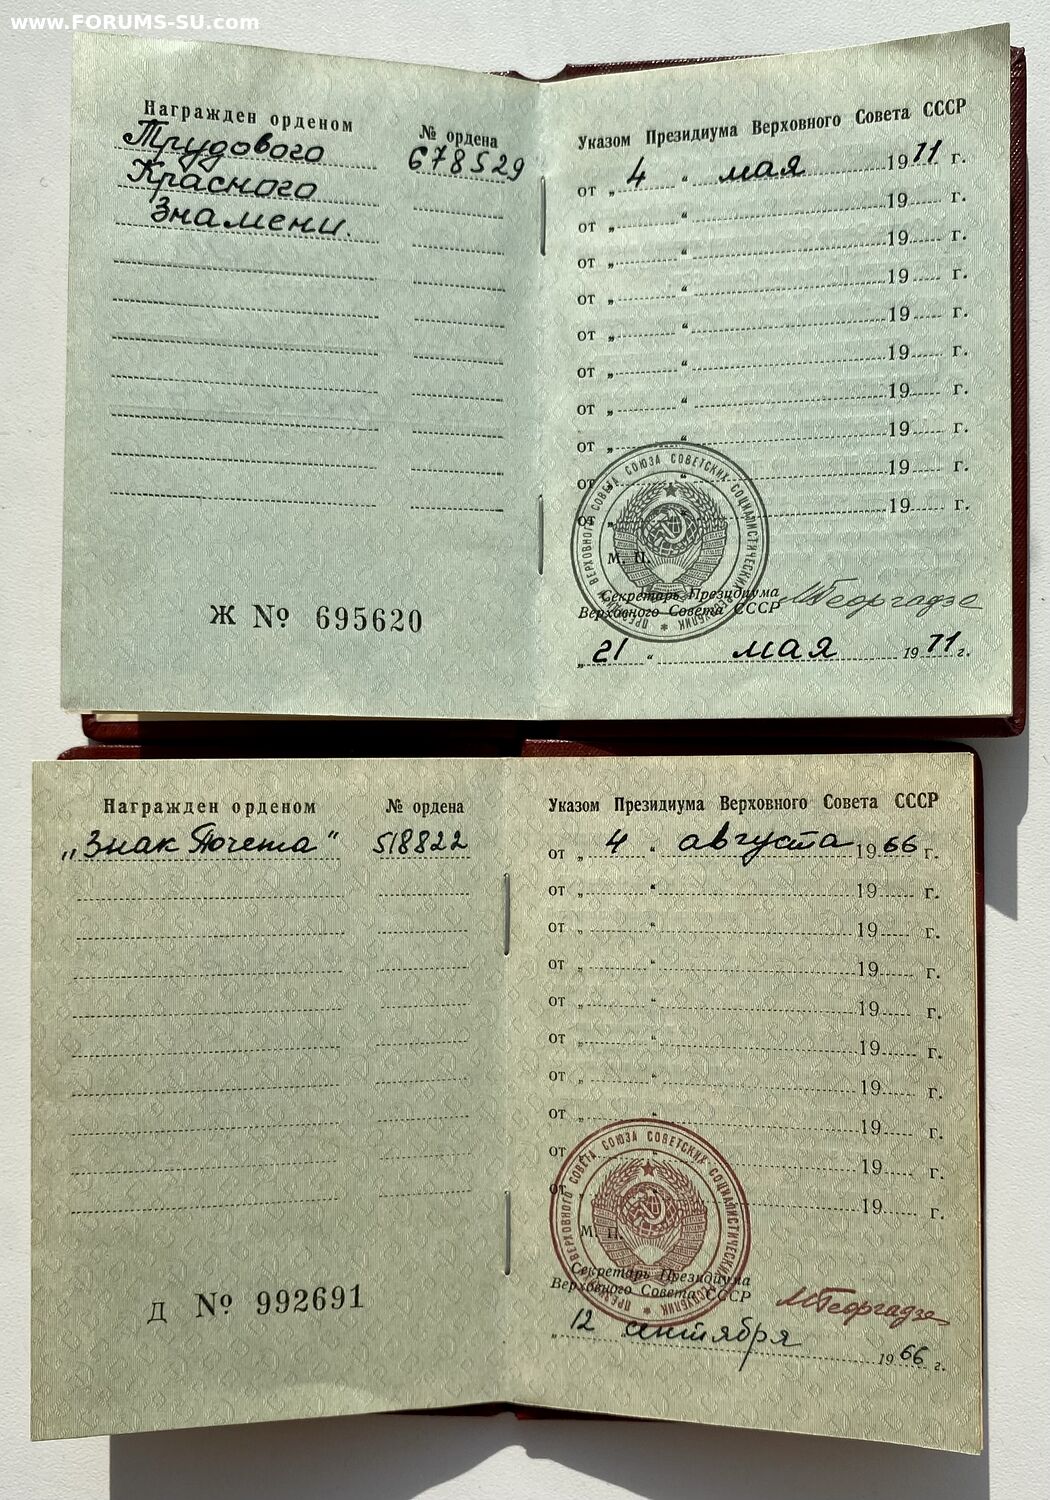 www.FORUMS-SU.com
Награжден орденом
№ ордена
Трудового
678529
Красного
Знамени.
Ж № 695620
Указом Президиума Верховного Совета СССР
от „ 4 “ мая 1971 г.
от „ “ 19 г.
от „ “ 19 г.
от „ “ 19 г.
от „ “ 19 г.
от „ “ 19 г.
от „ “ 19 г.
от „ “ 19 г.
от „ “ 19 г.
от „ “ 19 г.
ПРЕЗИДИУМ ВЕРХОВНОГО СОВЕТА СОЮЗА СОВЕТСКИХ СОЦИАЛИСТИЧЕСКИХ РЕСПУБЛИК
М. П.
Секретарь Президиума
Верховного Совета СССР
МГеоргадзе
„ 21 “ мая 1971 г.
Награжден орденом
№ ордена
„Знак Почета“
518822
Д № 992691
Указом Президиума Верховного Совета СССР
от „ 4 “ августа 1966 г.
от „ “ 19 г.
от „ “ 19 г.
от „ “ 19 г.
от „ “ 19 г.
от „ “ 19 г.
от „ “ 19 г.
от „ “ 19 г.
от „ “ 19 г.
от „ “ 19 г.
ПРЕЗИДИУМ ВЕРХОВНОГО СОВЕТА СОЮЗА СОВЕТСКИХ СОЦИАЛИСТИЧЕСКИХ РЕСПУБЛИК
М. П.
Секретарь Президиума
Верховного Совета СССР
МГеоргадзе
„ 12 “ сентября 1966 г.